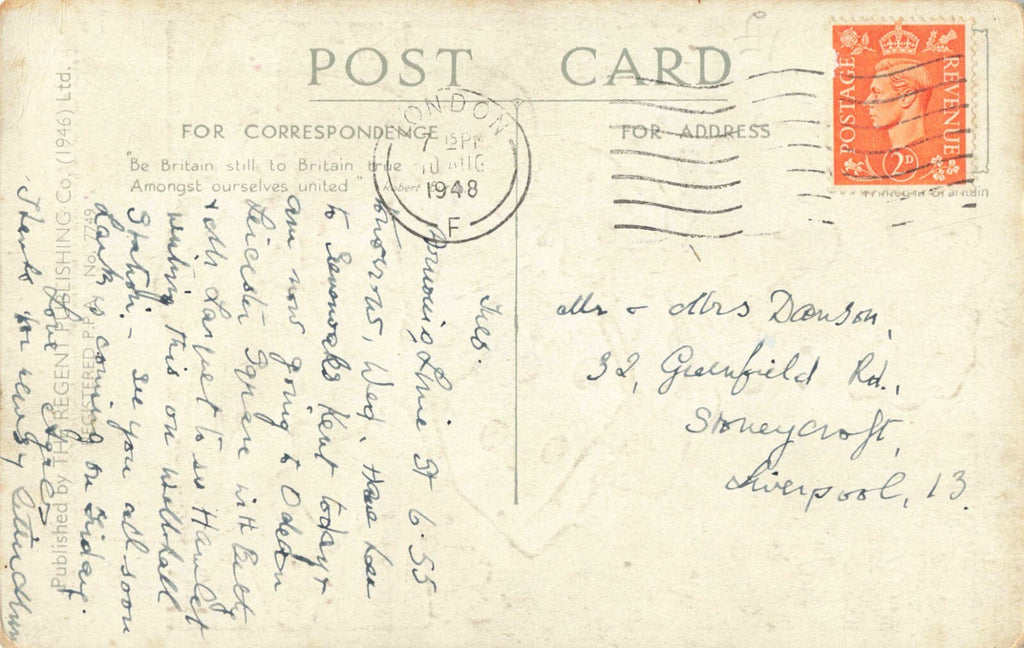 POST CARD
FOR CORRESPONDENCE
FOR ADDRESS
"Be Britain still to Britain true
Amongst ourselves united"
Robert
LONDON
7 15 PM
10 AUG
1948
F
POSTAGE
REVENUE
2D
Printed in Gt. Britain
Published by THE REGENT PUBLISHING Co. (1946) Ltd.
REGISTERED P.P.A. No. 7749
Tues.
arriving Lime St 6.55
tomorrow, Wed, Have been
to Sevenoaks Kent today &
am now going to Odeon
Leicester Square with
& Mr to see Hamlet
writing this on
Station - See you all soon
is coming on Friday.
Love
Thanks for
Mr & Mrs Dawson,
32, Greenfield Rd.,
Stoneycroft,
Liverpool, 13